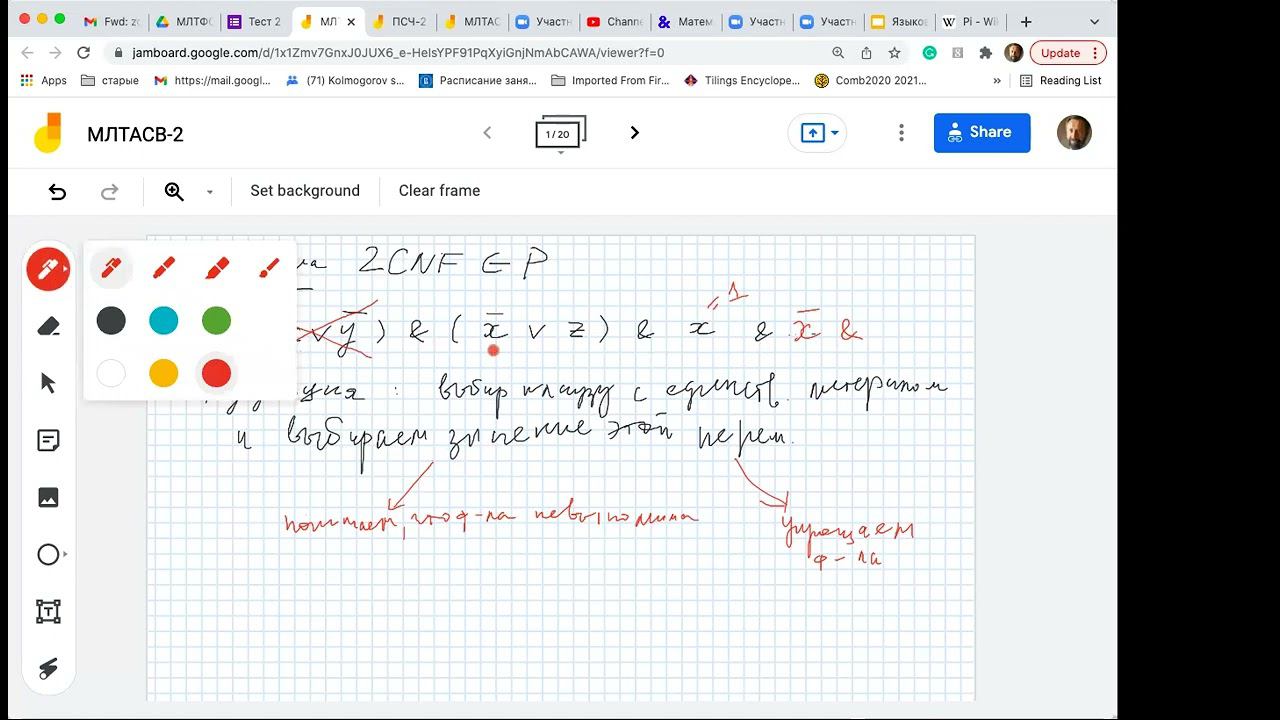 Fwd: zc
МЛТФ
Тест 2
МЛ
ПСЧ-2
МЛТАС
Участн
Channe
Матем
Участн
Участн
Языков
Pi - Wi
jamboard.google.com/d/1x1Zmv7GnxJ0JUX6_e-HelsYPF91PqXyiGnjNmAbCAWA/viewer?f=0
Update
Apps
старые
https://mail.googl...
(71) Kolmogorov s...
Расписание заня...
Imported From Fir...
Tilings Encyclope...
Comb2020 2021...
»
Reading List
МЛТАСВ-2
1 / 20
Share
Set background
Clear frame
2CNF ∈ P
∨ y̅ ) & ( x̅ ∨ z ) & x = 1 & x̅ &
: выбир клаузу с единств. литералом
и выбираем значение этой перем.
понимаем, что ф-ла невыполнима
упрощаем
ф-ла